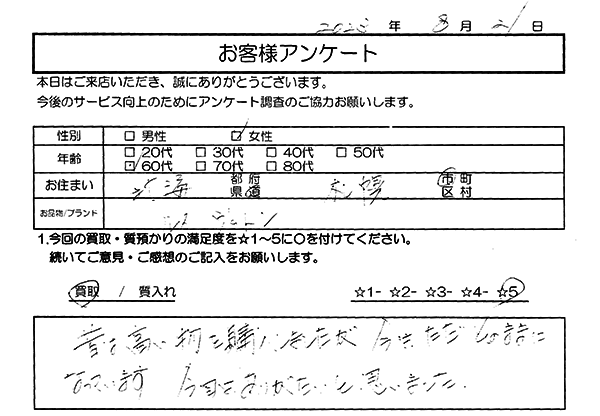 2023 年 8 月 21 日
お客様アンケート
本日はご来店いただき、誠にありがとうございます。
今後のサービス向上のためにアンケート調査のご協力お願いします。
性別 □ 男性 ☑ 女性
年齢 □ 20代 □ 30代 □ 40代 □ 50代
☑ 60代 □ 70代 □ 80代
お住まい 北海 都府県道 札幌 市町区村
お品物/ブランド ルイ ヴィトン
1.今回の買取・質預かりの満足度を☆1～5に○を付けてください。
続いてご意見・ご感想のご記入をお願いします。
買取 / 質入れ ☆1- ☆2- ☆3- ☆4- ☆5
昔は高い物を購入きたが 今はただ
なっています 今日はありがたいと思いました.